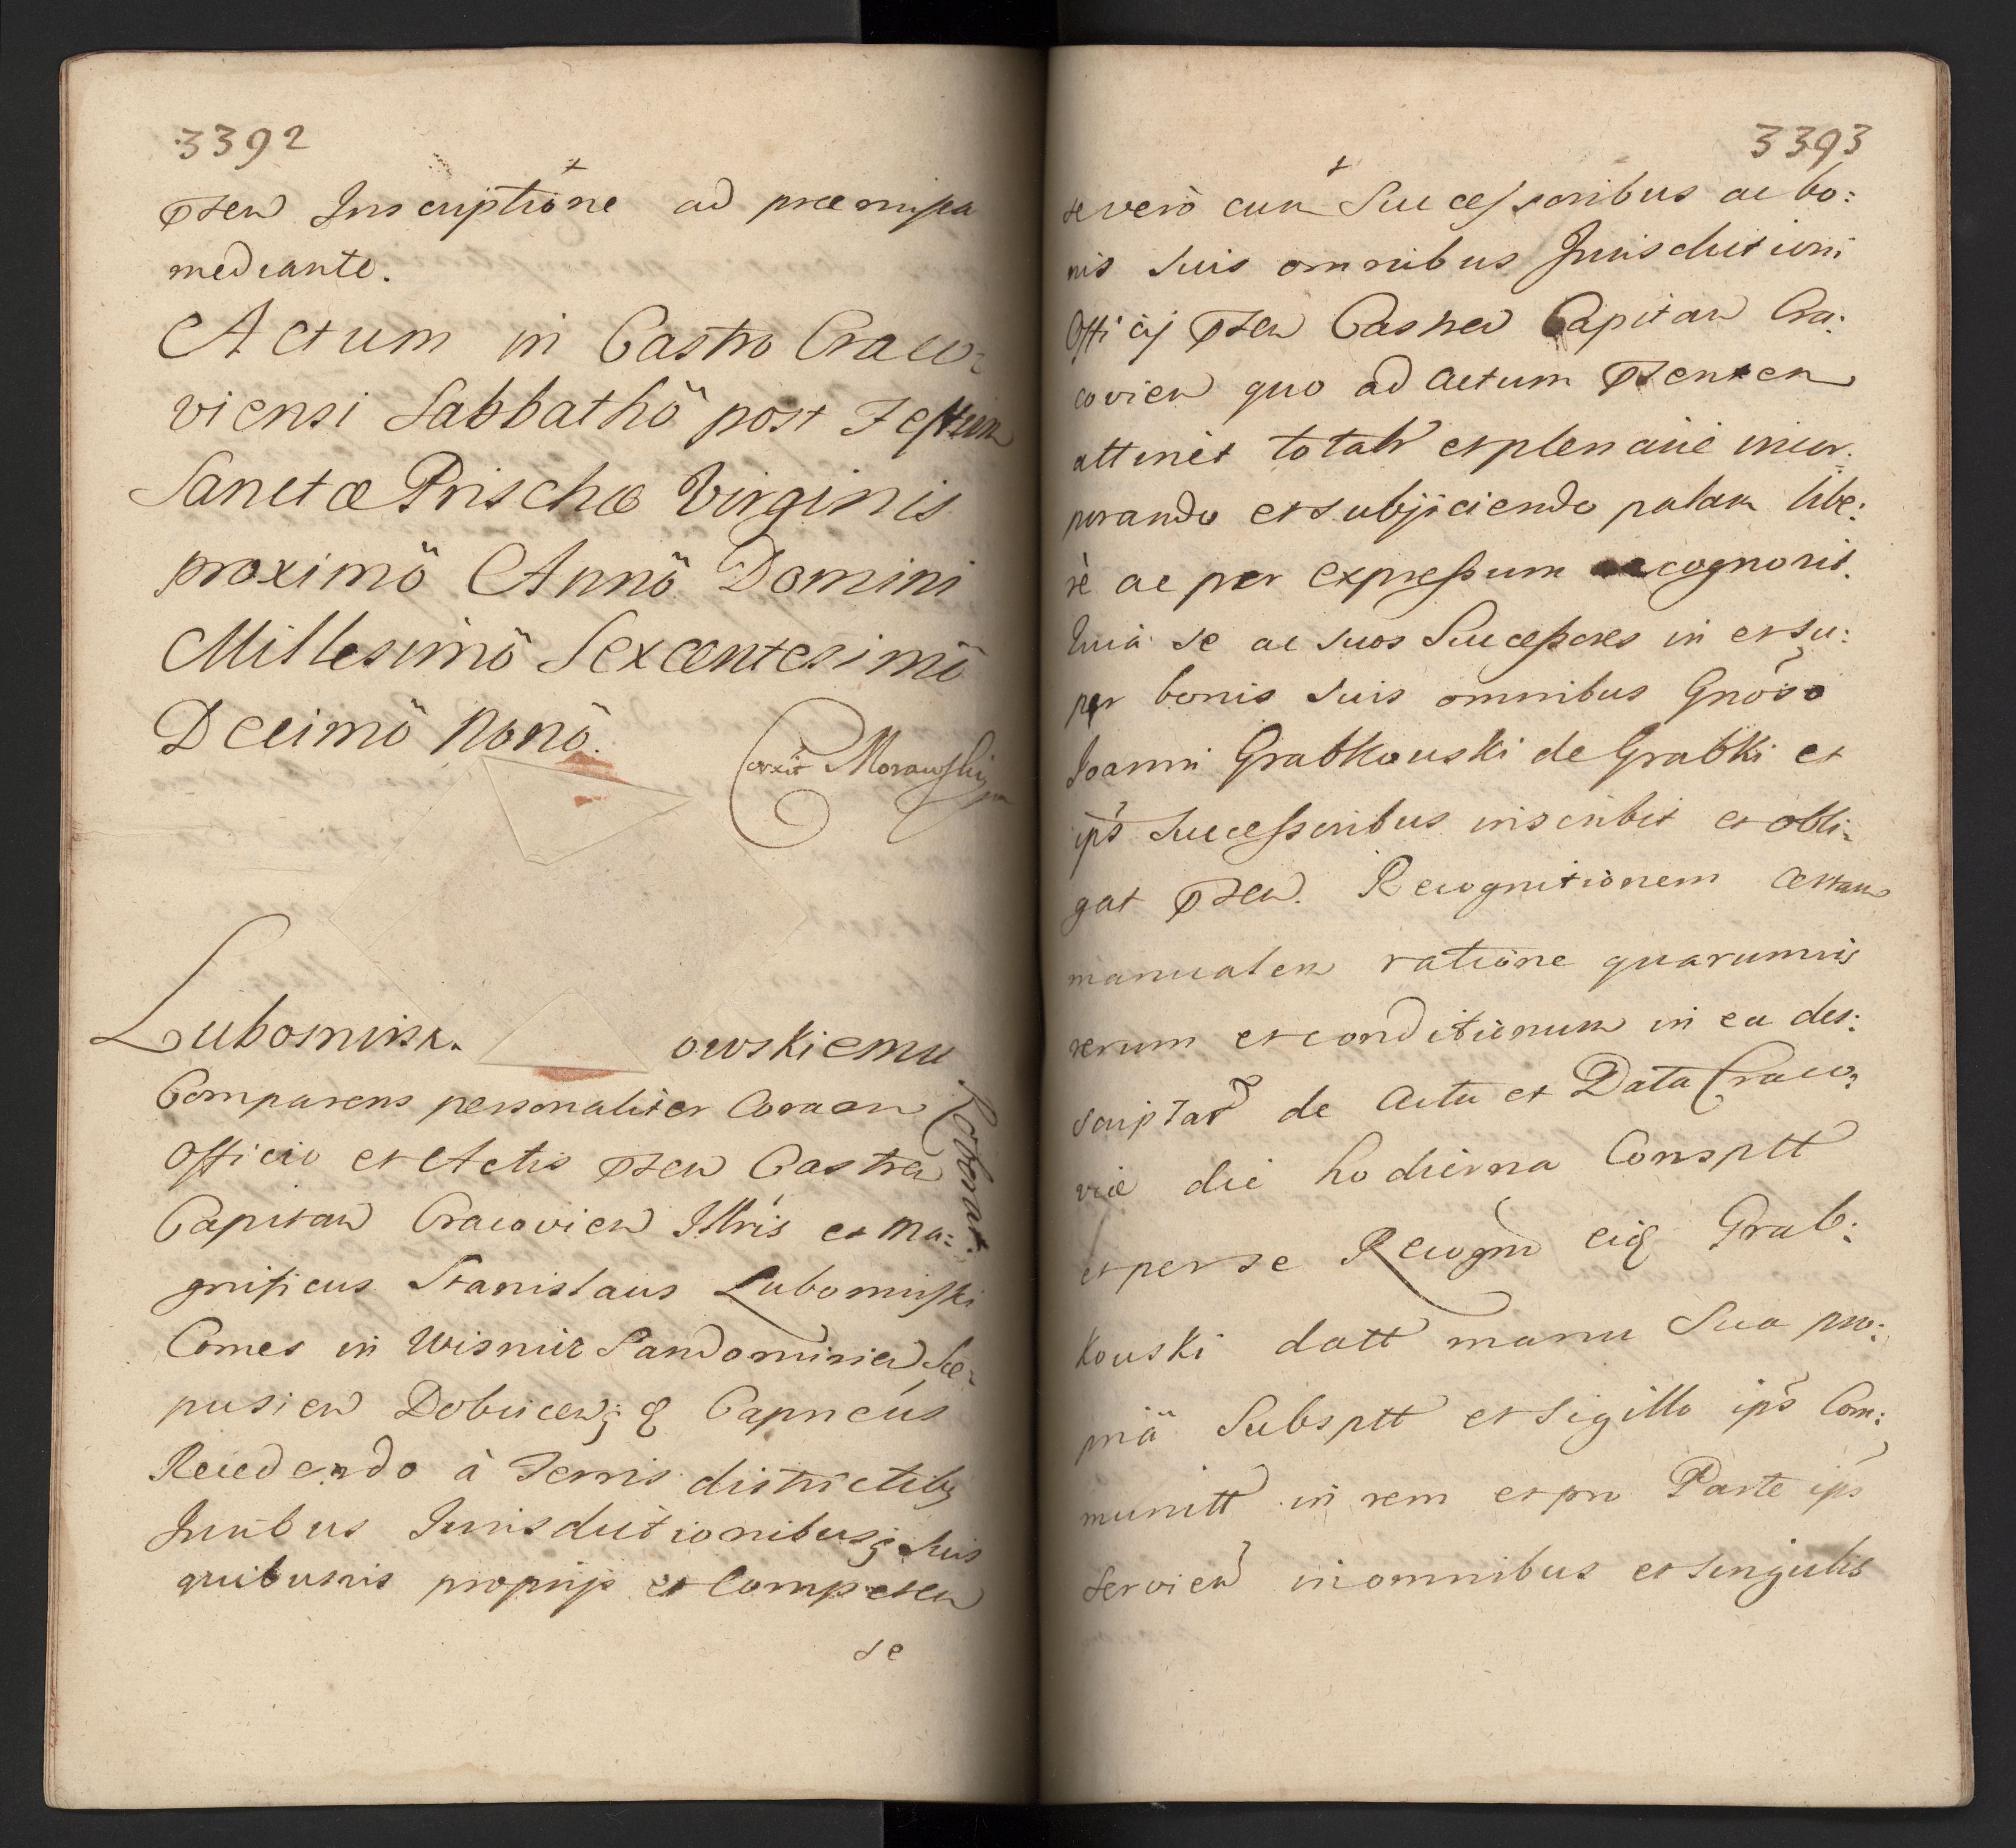 3392
pten Inscriptione ad præmissa
mediante.
Actum in Castro Craco=
viensi Sabbathö post Festum
Sanctæ Prischæ Virginis
proximö Annö Domini
Millesimö Sexcentesimö
Decimö Nonö.
Corexit Morawski
Lubomirsk. owskiemu
Roborat.
Comparens personaliter Coram
Officio et Actis pten Castren
Capitan Cracovien Illris et Ma:
gnificus Stanislaus Lubomirski
Comes in Wisnicz Sandomirien Sce=
pusien Dobcicen; q Capneus
Recedendo à Terris districtibq
Juribus Jurisdictionibusq Suis
quibusvis proprijs et Competen
se
3393
se verò cum Successoribus ac bo:
nis suis omnibus Jurisdictioni
Officij pten Castren Capitan Cra:
covien quo ad actum ptensen
attinet totalr et plenarie incor:
porando et subijciendo palam libe:
rè ac per expressum recognovit.
Quia se ac suos Successores in et su:
per bonis suis omnibus Gnoso
Joanni Grabkouski de Grabki et
ips Successoribus inscribit et obli=
gat pten. Recognitionem certam
manualem ratione quarumvis
rerum et conditionum in ea des:
criptar de Actu et Data Craco=
viæ die hodierna Consptt
et per se Recogn eiq Grab:
kouski datt manu Sua pro:
priä Subsptt et sigillo ips Com:
munitt in rem et pro Parte ips
servien in omnibus et singulis